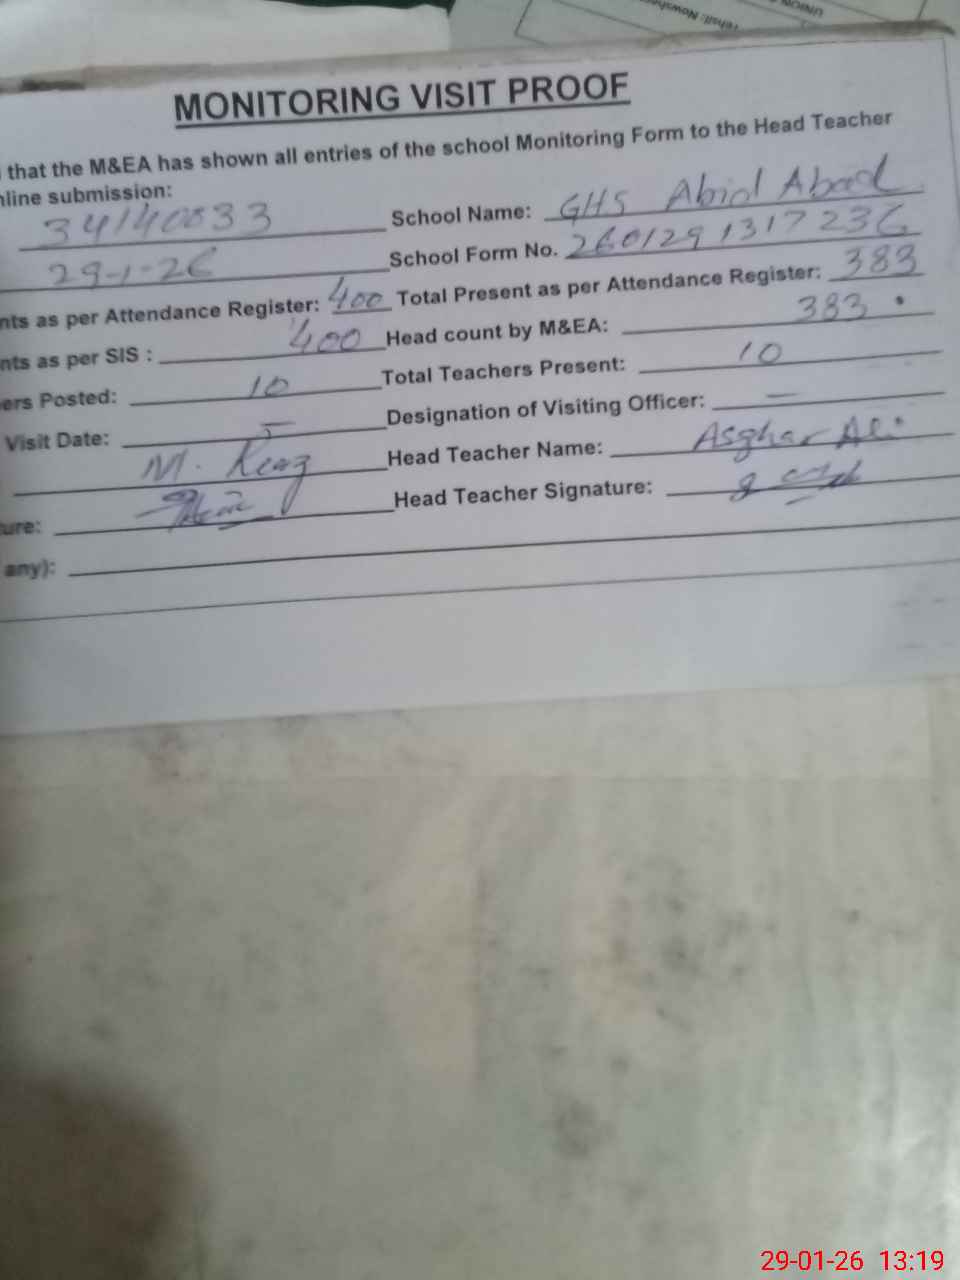 UNION
MONITORING VISIT PROOF
that the M&EA has shown all entries of the school Monitoring Form to the Head Teacher
nline submission:
34140033 School Name: GHS Abid Abad
29-1-26 School Form No. 2601291317236
nts as per Attendance Register: 400 Total Present as per Attendance Register: 383
nts as per SIS : 400 Head count by M&EA: 383
ers Posted: 10 Total Teachers Present: 10
Visit Date: Designation of Visiting Officer: —
M. Head Teacher Name: Asghar Ali
ure: Head Teacher Signature:
any):
29-01-26 13:19